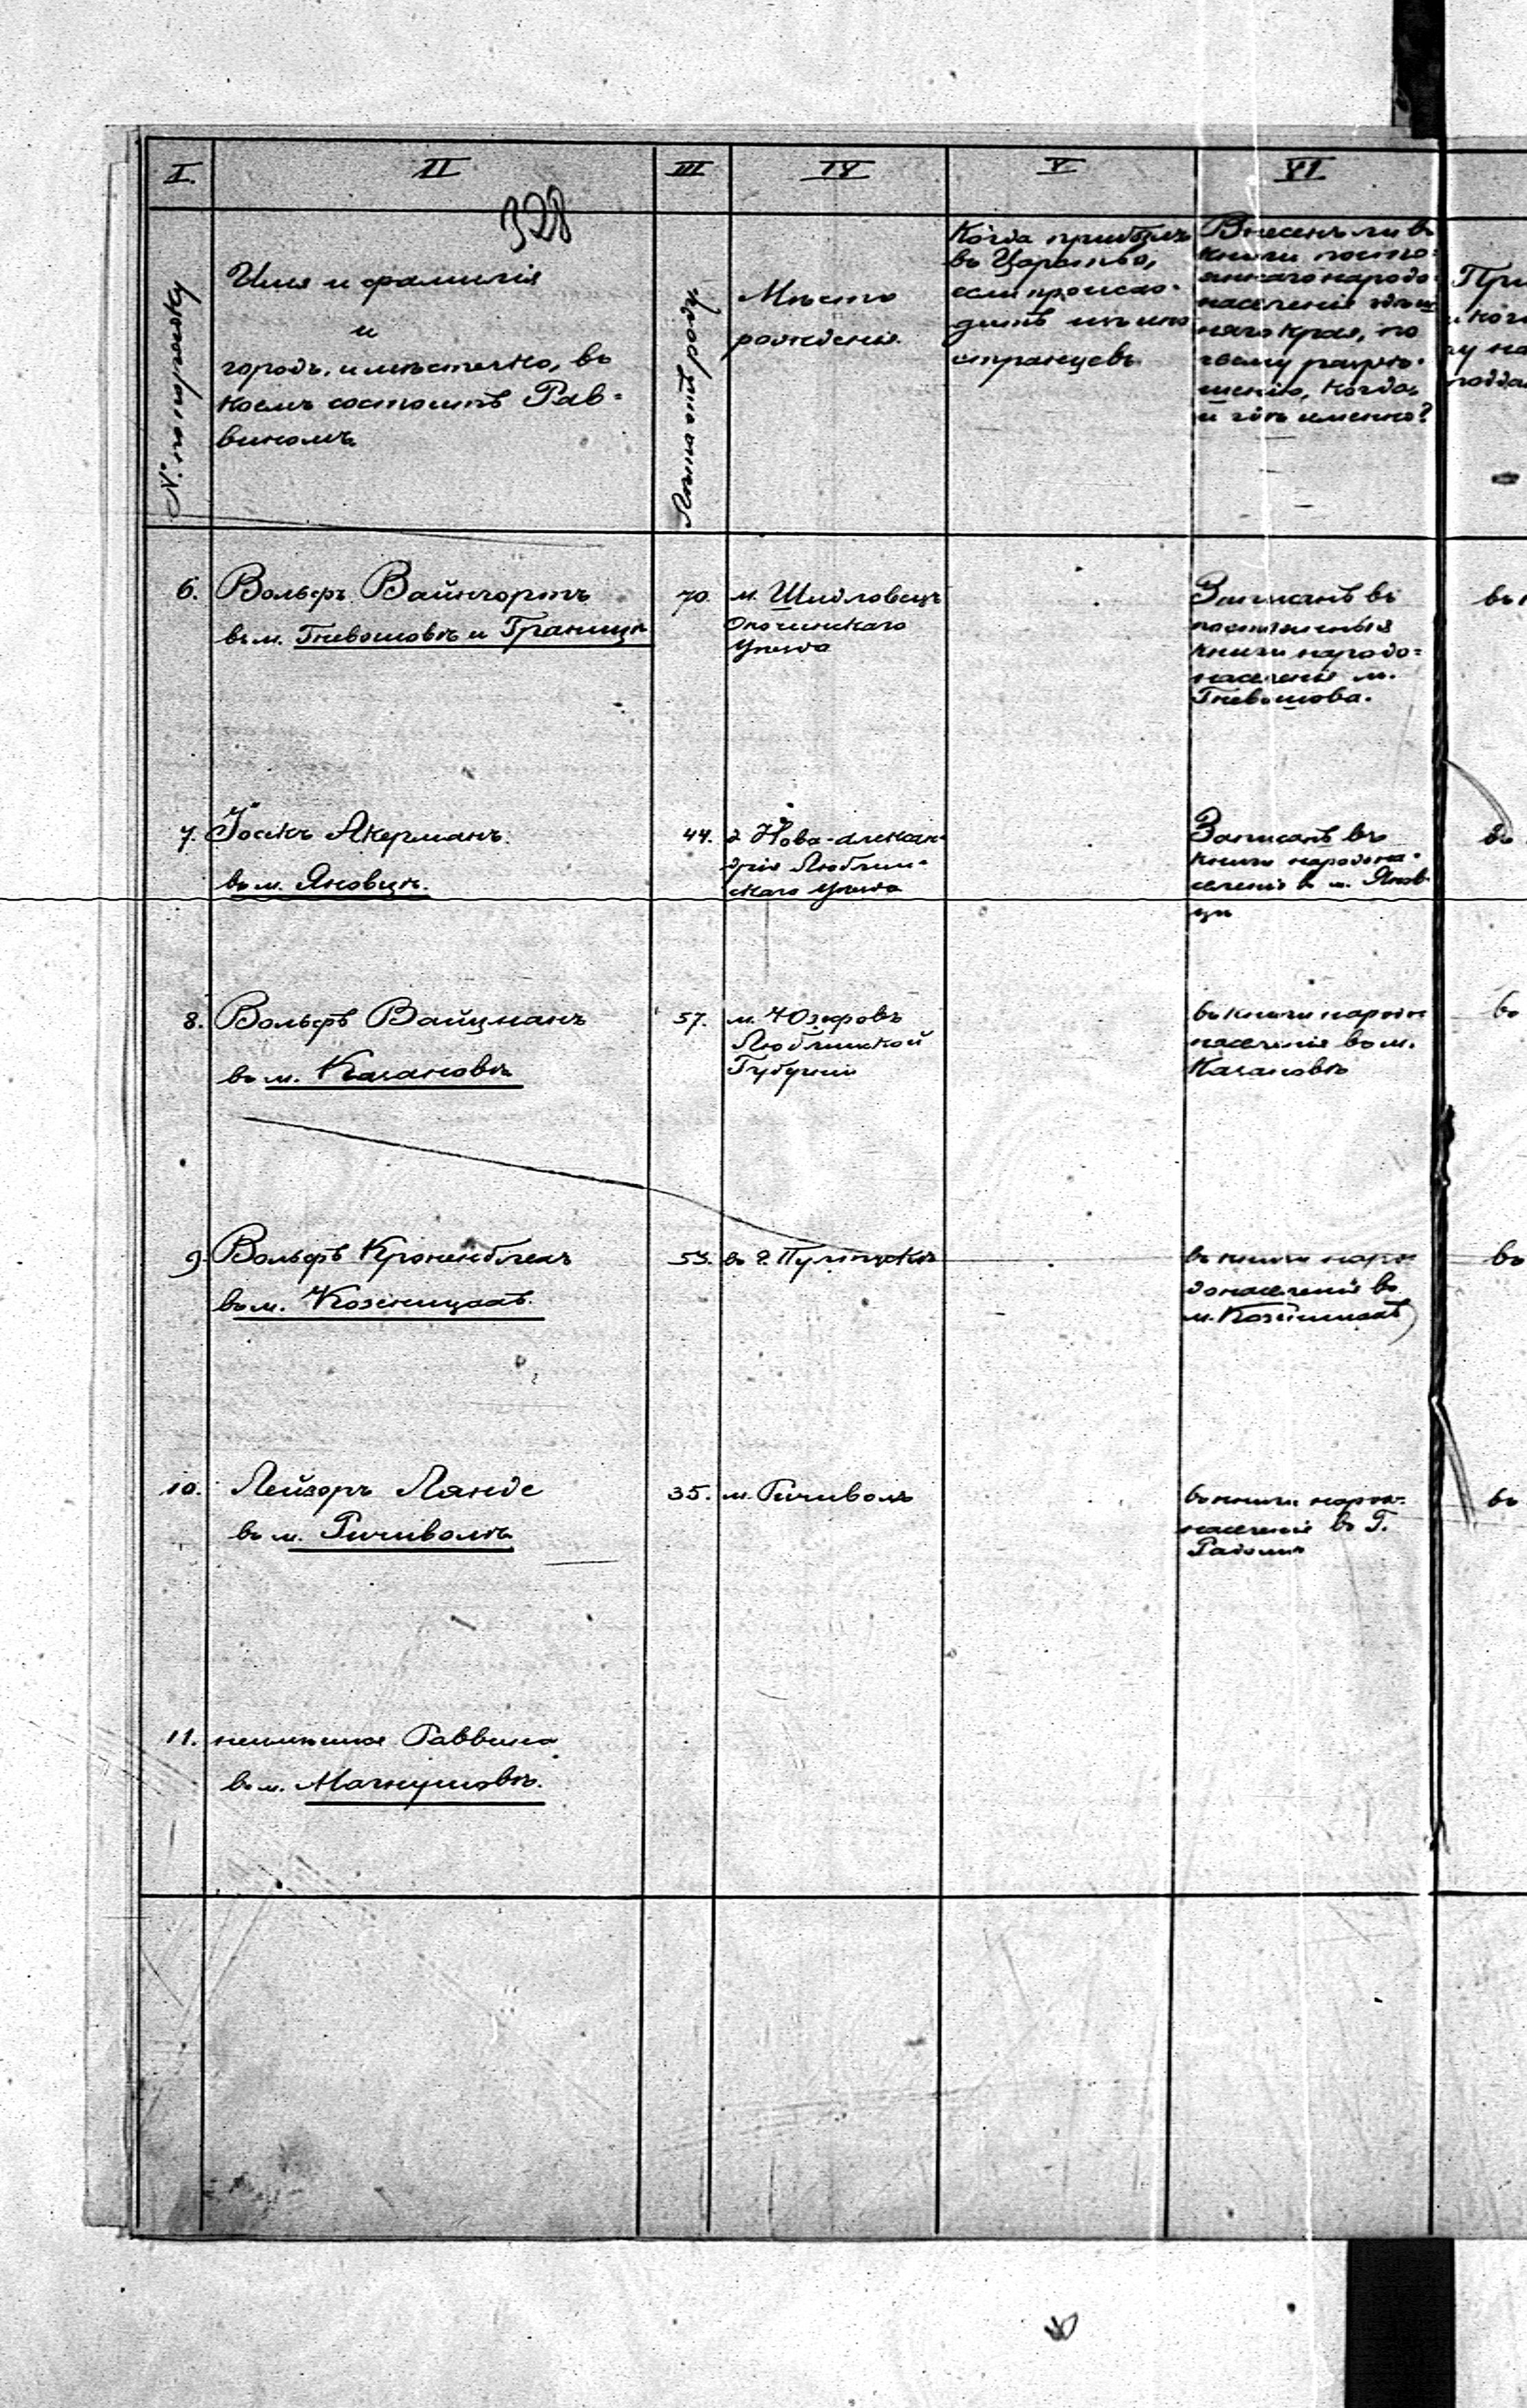 I.
II
III
IV
V
VI
328
№ по порядку
Имя и фамилія
и
городъ, и мѣстечко, въ
коемъ состоитъ Рав-
виномъ
Лѣта отъ роду
Мѣсто
рожденія
Когда прибылъ
въ Царство,
если происхо-
дитъ изъ ино
странцевъ
Внесенъ ли въ
книги посто-
яннаго народо-
населенія здѣш
няго края, по
чьему разрѣ-
шенію, когда
и гдѣ именно?
6.
Вольфъ Вайнгортъ
въ м. Гневошовѣ и Границѣ
70.
м. Шидловецъ
Опочинскаго
Уѣзда
Записанъ въ
постоянныя
книги народо=
населенія м.
Гневошова.
7.
Іосекъ Акерманъ
въ м. Яновцѣ.
44.
г Нова-алексан-
дрія Люблин-
скаго Уѣзда
Записанъ въ
книги народона-
селенія въ м. Янов-
цѣ
8.
Вольфъ Вайцманъ
въ м. Казановѣ
57.
м. Юзефовъ
Люблинской
Губерніи
въ книги народо
населенія въ м.
Казановѣ
9.
Вольфъ Кроненблехъ
въ м. Козеницахъ.
53.
въ г. Пултускѣ
въ книги наро
донаселенія въ
м. Козеницахъ
10.
Лейзоръ Ланде
въ м. Ричиволѣ
35.
м. Ричиволъ
въ книги народо-
населенія въ Г.
Радомѣ
11.
неимѣется Раввина
въ м. Магнушовѣ.